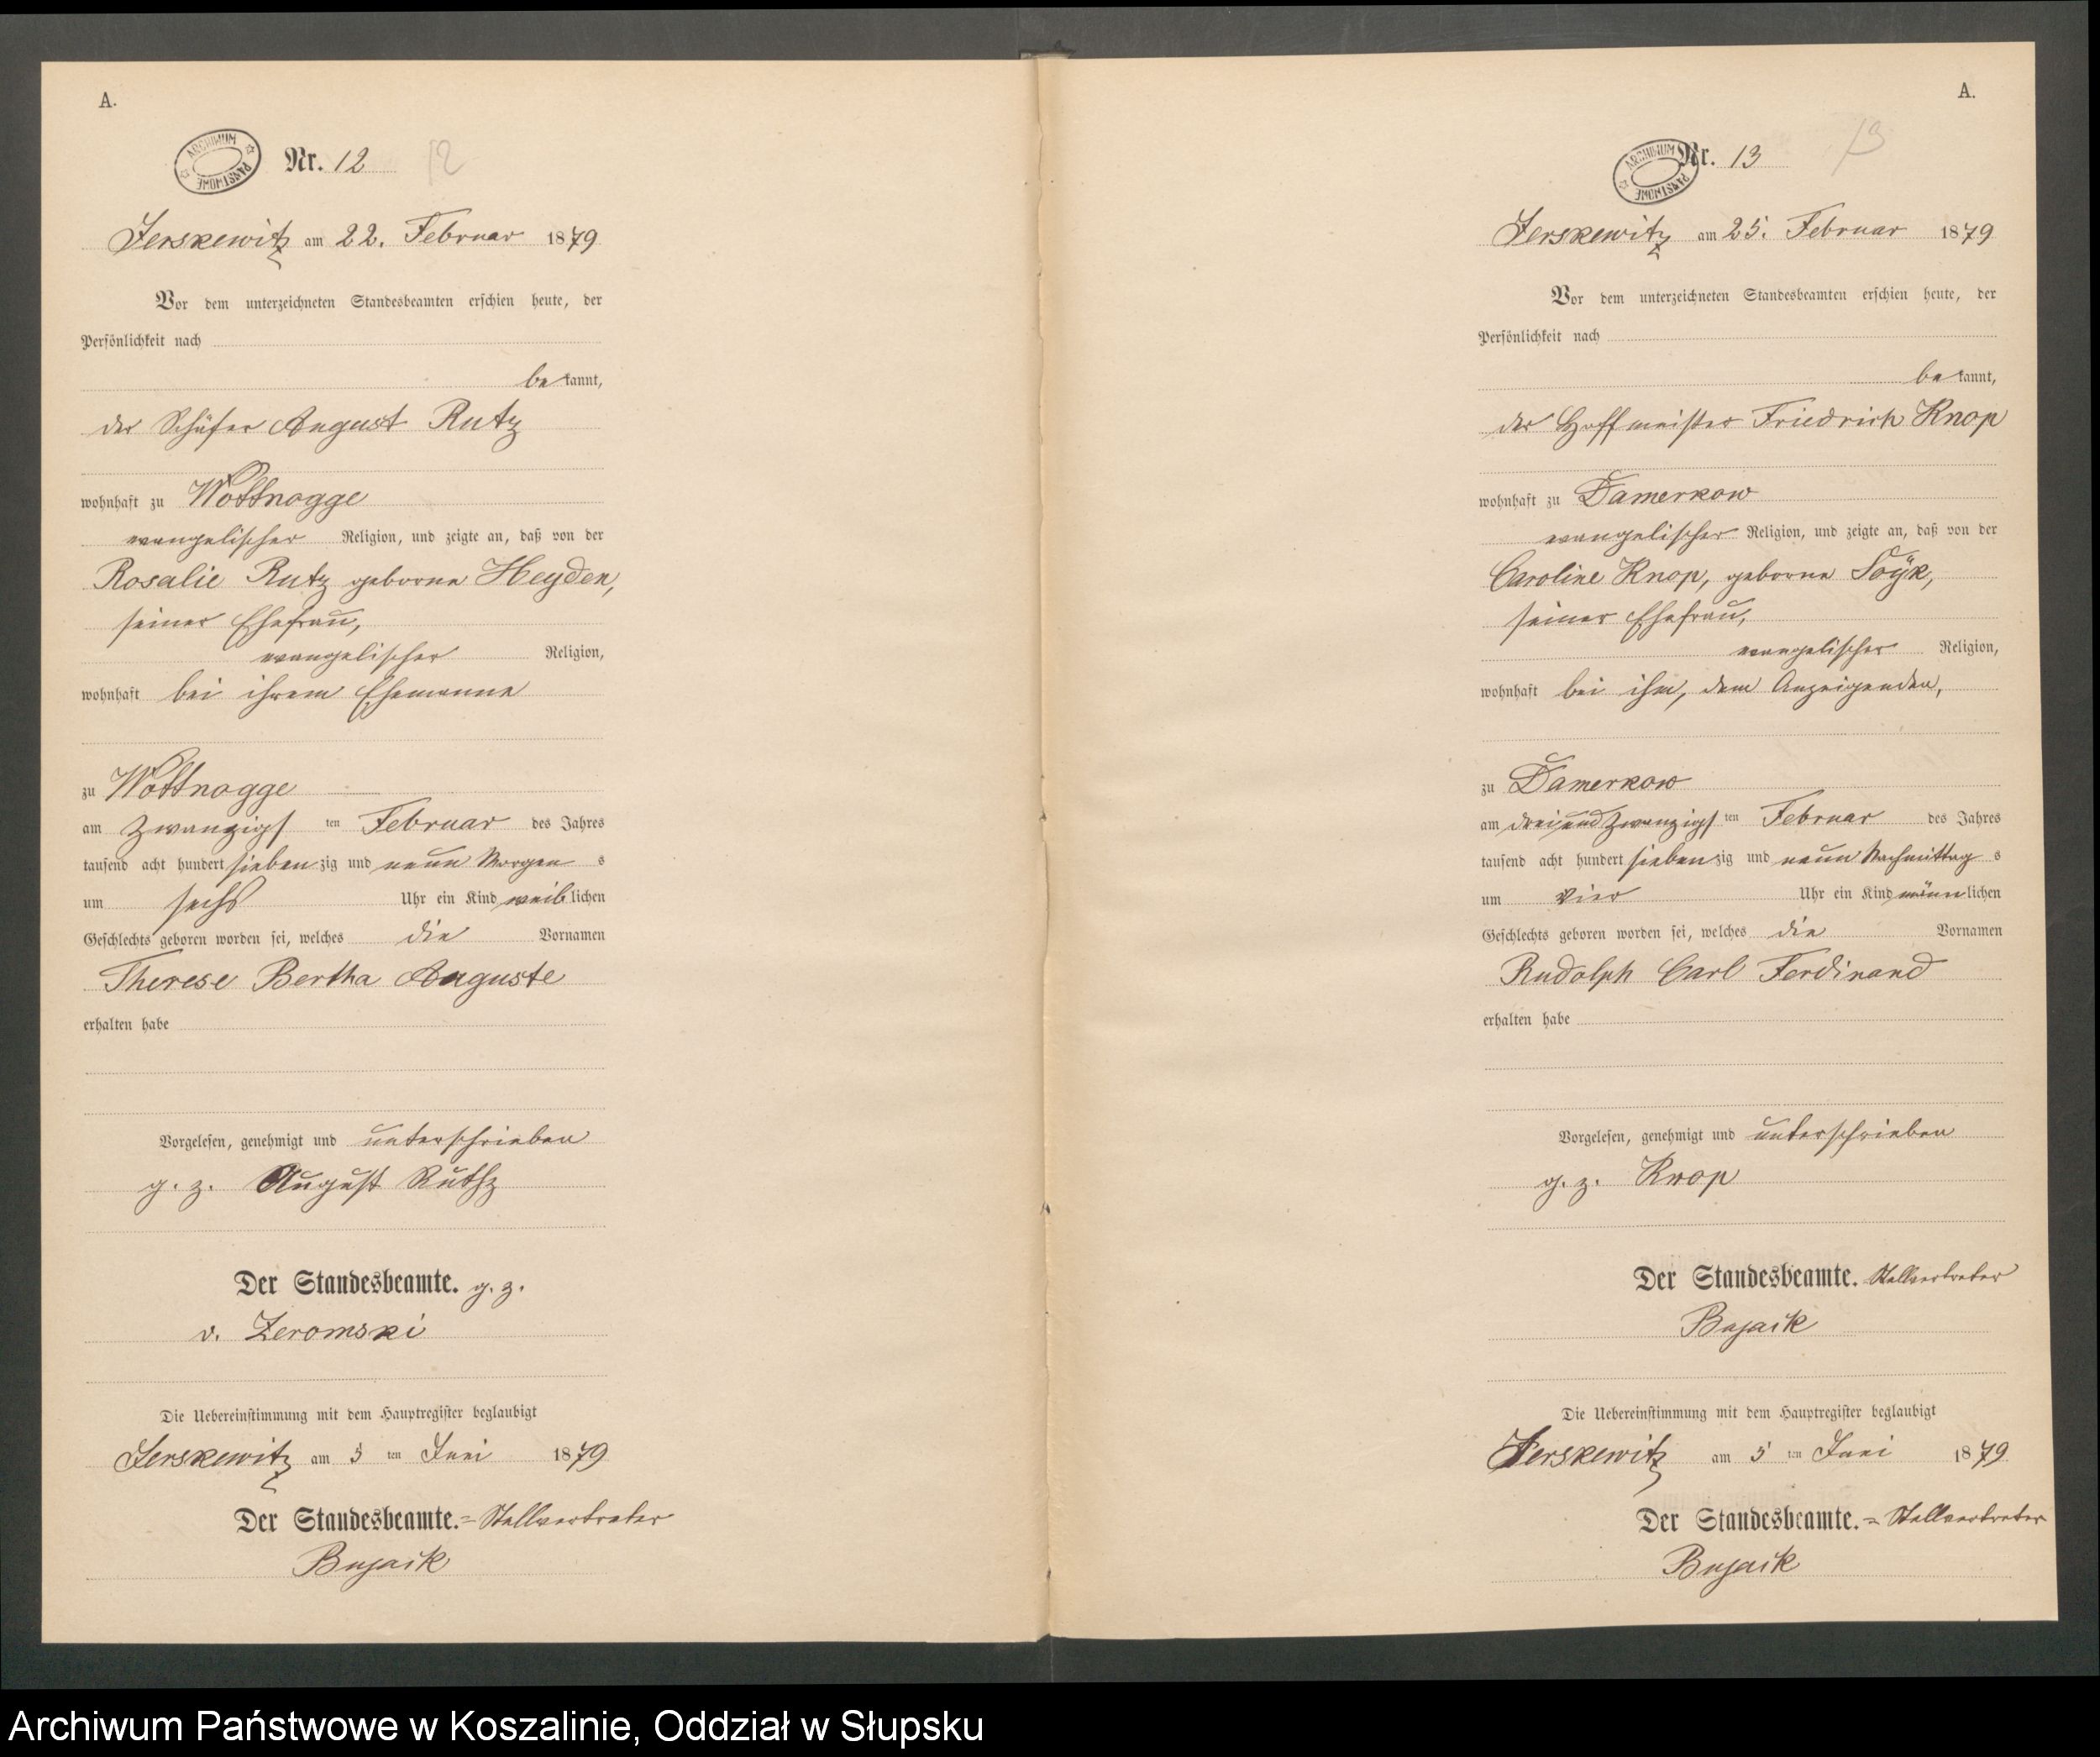 A.
ARCHIWUM PAŃSTWOWE
Nr. 12 12
Jerskewitz am 22. Februar 1879
Vor dem unterzeichneten Standesbeamten erschien heute, der
Persönlichkeit nach
bekannt,
der Schäfer August Rutz
wohnhaft zu Wottnogge
evangelischer Religion, und zeigte an, daß von der
Rosalie Rutz geborne Heyden,
seiner Ehefrau,
evangelischer Religion,
wohnhaft bei ihrem Ehemanne
zu Wottnogge
am Zwanzigsten Februar des Jahres
tausend acht hundert siebenzig und neun Morgens
um sechs Uhr ein Kind weiblichen
Geschlechts geboren worden sei, welches die Vornamen
Therese Bertha Auguste
erhalten habe
Vorgelesen, genehmigt und unterschrieben
g. z. August Ruthz
Der Standesbeamte. g. z.
v. Zeromski
Die Uebereinstimmung mit dem Hauptregister beglaubigt
Jerskewitz am 5 ten Juni 1879
Der Standesbeamte.=Stellvertreter
Bujack
A.
ARCHIWUM PAŃSTWOWE
Nr. 13 13
Jerskewitz am 25. Februar 1879
Vor dem unterzeichneten Standesbeamten erschien heute, der
Persönlichkeit nach
bekannt,
der Hoffmeister Friedrich Knop
wohnhaft zu Damerkow
evangelischer Religion, und zeigte an, daß von der
Caroline Knop, geborne Soÿk,
seiner Ehefrau,
evangelischer Religion,
wohnhaft bei ihm, dem Anzeigenden,
zu Damerkow
am dreiundzwanzigsten Februar des Jahres
tausend acht hundert siebenzig und neun Nachmittags
um vier Uhr ein Kind männlichen
Geschlechts geboren worden sei, welches die Vornamen
Rudolph Carl Ferdinand
erhalten habe
Vorgelesen, genehmigt und unterschrieben
g. z. Knop
Der Standesbeamte. Stellvertreter
Bujack
Die Uebereinstimmung mit dem Hauptregister beglaubigt
Jerskewitz am 5 ten Juni 1879
Der Standesbeamte.=Stellvertreter
Bujack
Archiwum Państwowe w Koszalinie, Oddział w Słupsku